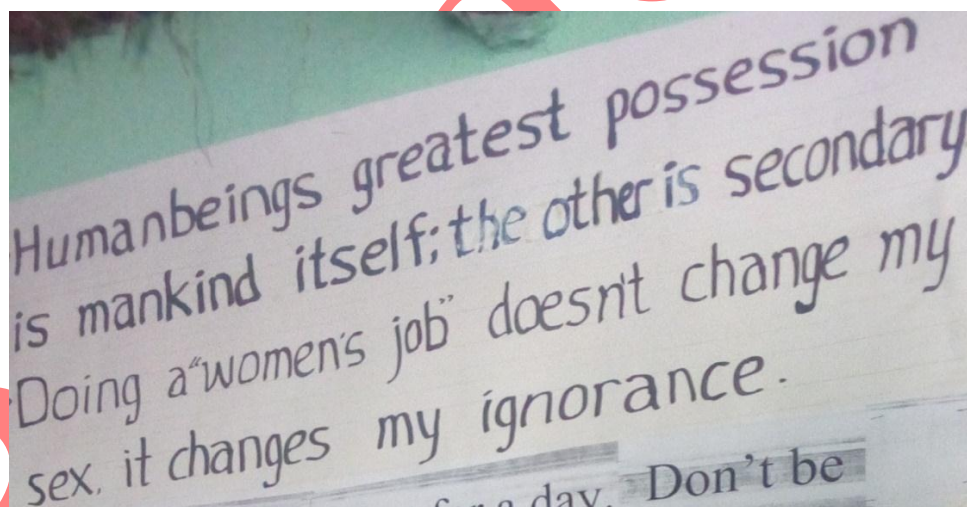 Humanbeings greatest possession
is mankind itself; the other is secondary
Doing a "women's job" doesn't change my
sex. it changes my ignorance.
day. Don't be